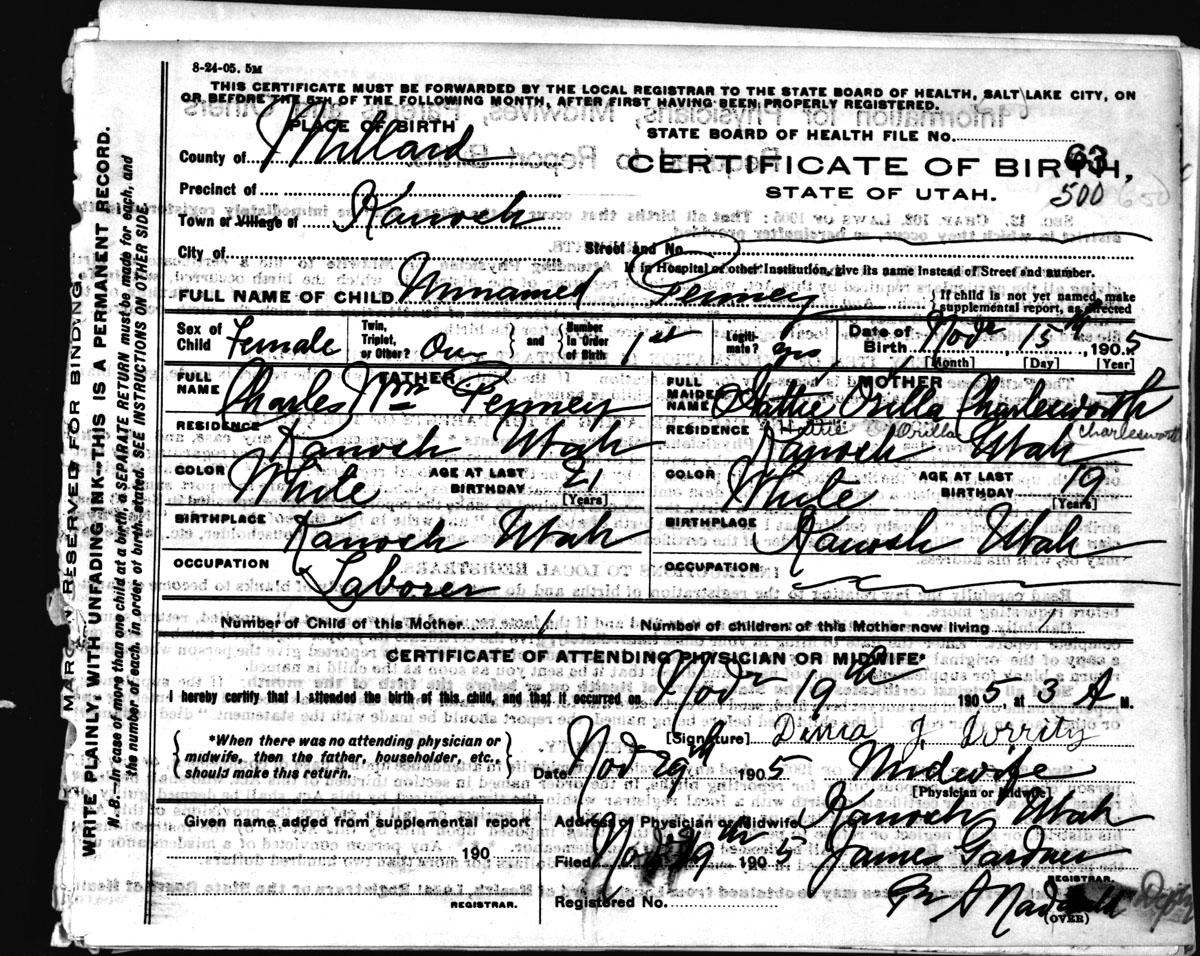 8-24-05. 5M
THIS CERTIFICATE MUST BE FORWARDED BY THE LOCAL REGISTRAR TO THE STATE BOARD OF HEALTH, SALT LAKE CITY, ON
OR BEFORE THE 5TH OF THE FOLLOWING MONTH, AFTER FIRST HAVING BEEN PROPERLY REGISTERED.
PLACE OF BIRTH
STATE BOARD OF HEALTH FILE NO.
County of Millard
63
CERTIFICATE OF BIRTH,
Precinct of
STATE OF UTAH.
500
Town or Village of Kanosh
City of
Street and No.
If in Hospital or other Institution, give its name instead of Street and number.
FULL NAME OF CHILD Unnamed Penney
If child is not yet named, make supplemental report, as directed
Sex of Child Female
Twin, Triplet, or Other? One and Number in Order of Birth 1st
Legitimate? yes
Date of Birth Nov 15th, 1905
[Month] [Day] [Year]
FATHER
FULL NAME Charles Wm Penney
RESIDENCE Kanosh Utah
COLOR White AGE AT LAST BIRTHDAY 21
[Years]
BIRTHPLACE Kanosh Utah
OCCUPATION Laborer
MOTHER
FULL MAIDEN NAME Hattie Orilla Charlesworth
Hattie Orilla Charlesworth
RESIDENCE Kanosh Utah
COLOR White AGE AT LAST BIRTHDAY 19
[Years]
BIRTHPLACE Kanosh Utah
OCCUPATION
Number of Child of this Mother 1 Number of children of this Mother now living 1
CERTIFICATE OF ATTENDING PHYSICIAN OR MIDWIFE*
I hereby certify that I attended the birth of this child, and that it occurred on Nov 19th 1905, at 3 A M.
*When there was no attending physician or midwife, then the father, householder, etc., should make this return.
[Signature] J. Dorrity
Date Nov 29th 1905 Midwife
[Physician or Midwife]
Given name added from supplemental report
190
REGISTRAR.
Address of Physician or Midwife Kanosh Utah
Filed 1905 James Gardner
REGISTRAR.
Registered No.
Depty
(OVER)
MARGIN RESERVED FOR BINDING.
WRITE PLAINLY, WITH UNFADING INK--THIS IS A PERMANENT RECORD.
N. B.--In case of more than one child at a birth, a SEPARATE RETURN must be made for each, and
the number of each, in order of birth, stated. SEE INSTRUCTIONS ON OTHER SIDE.